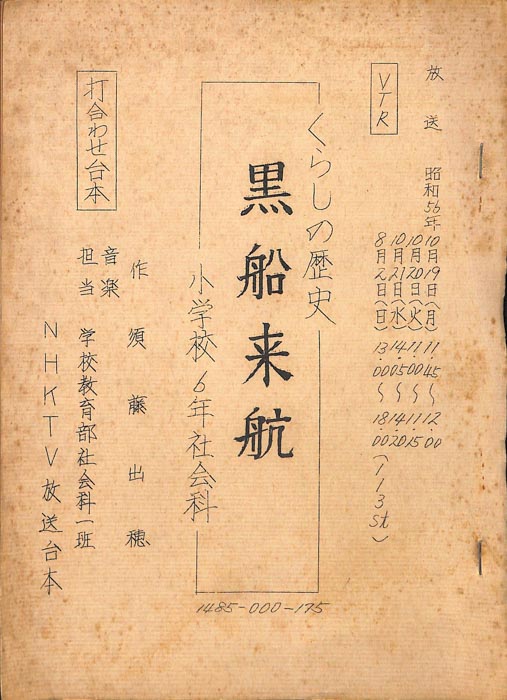 放送 昭和56年10月19日(月) 11.45～12.00
10月20日(火) 11.00～11.15
10月21日(水) 14.05～14.20
VTR
8月2日(日) 13.00～18.00(113st)
くらしの歴史
黒船来航
小学校6年社会科
1485-000-175
打合わせ台本
作 須藤出穂
音楽
担当 学校教育部社会科一班
NHKTV放送台本